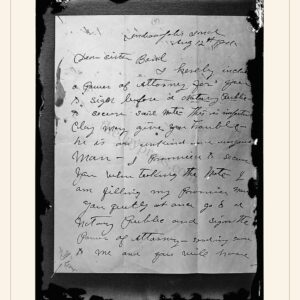 Indianapolis
Aug 12th
Dear Sister
I hereby
a Power of Attorney for you
to sign before a Notary Public
to secure said note This is important
Clay may give you trouble
he is an
Man - I Promised to
You when taking the Note I
am filling my Promise
you at once go to a
Notary Public and sign the
Power of Attorney - sending same
to me and you will have